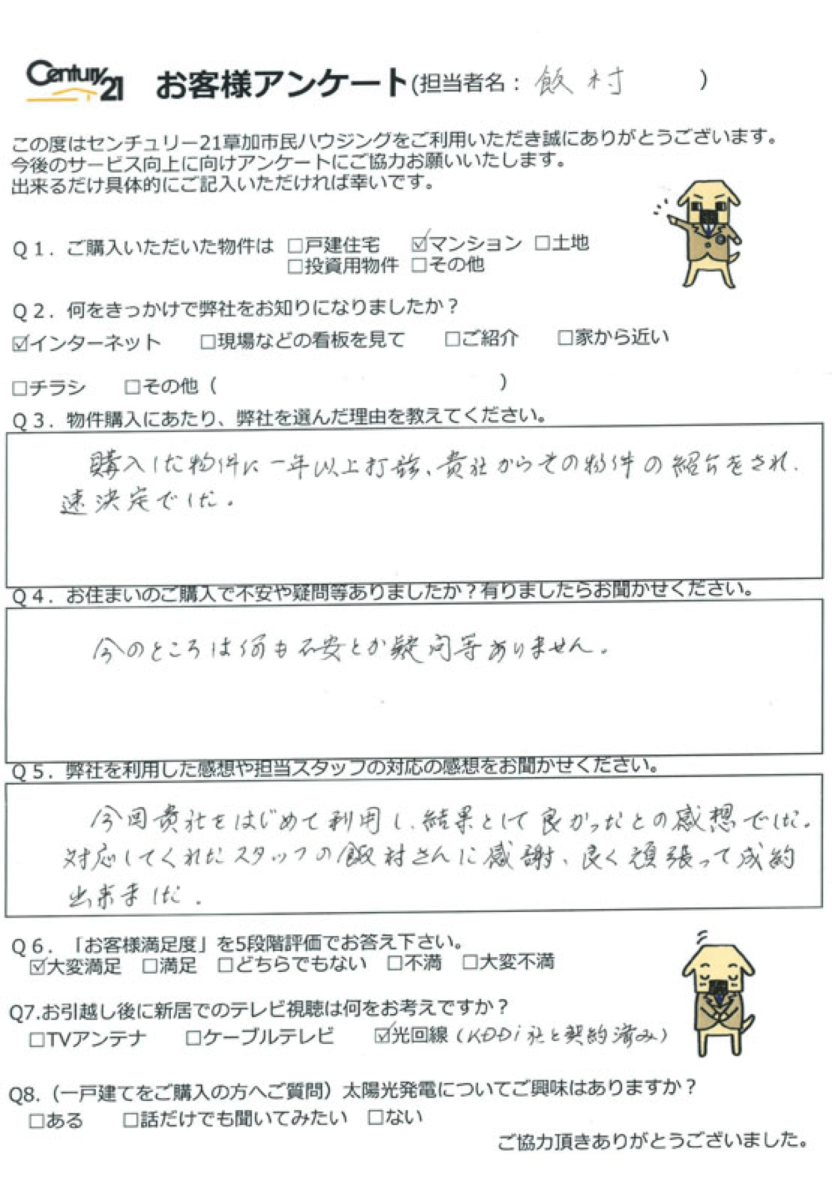 Century 21 お客様アンケート(担当者名：飯村　　)
この度はセンチュリー21草加市民ハウジングをご利用いただき誠にありがとうございます。
今後のサービス向上に向けアンケートにご協力お願いいたします。
出来るだけ具体的にご記入いただければ幸いです。
Q１．ご購入いただいた物件は □戸建住宅 ☑マンション □土地
□投資用物件 □その他
Q２．何をきっかけで弊社をお知りになりましたか？
☑インターネット □現場などの看板を見て □ご紹介 □家から近い
□チラシ □その他（　　　）
Q３．物件購入にあたり、弊社を選んだ理由を教えてください。
購入した物件に一年以上打診、貴社からその物件の紹介をされ、
速決定でした。
Q４．お住まいのご購入で不安や疑問等ありましたか？有りましたらお聞かせください。
今のところは何も不安とか疑問等ありません。
Q５．弊社を利用した感想や担当スタッフの対応の感想をお聞かせください。
今回貴社をはじめて利用し、結果として良かったとの感想でした。
対応してくれたスタッフの飯村さんに感謝、良く頑張って成約
出来ました。
Q６．「お客様満足度」を5段階評価でお答え下さい。
☑大変満足 □満足 □どちらでもない □不満 □大変不満
Q7.お引越し後に新居でのテレビ視聴は何をお考えですか？
□TVアンテナ □ケーブルテレビ ☑光回線（KDDi社と契約済み）
Q8.（一戸建てをご購入の方へご質問）太陽光発電についてご興味はありますか？
□ある □話だけでも聞いてみたい □ない
ご協力頂きありがとうございました。